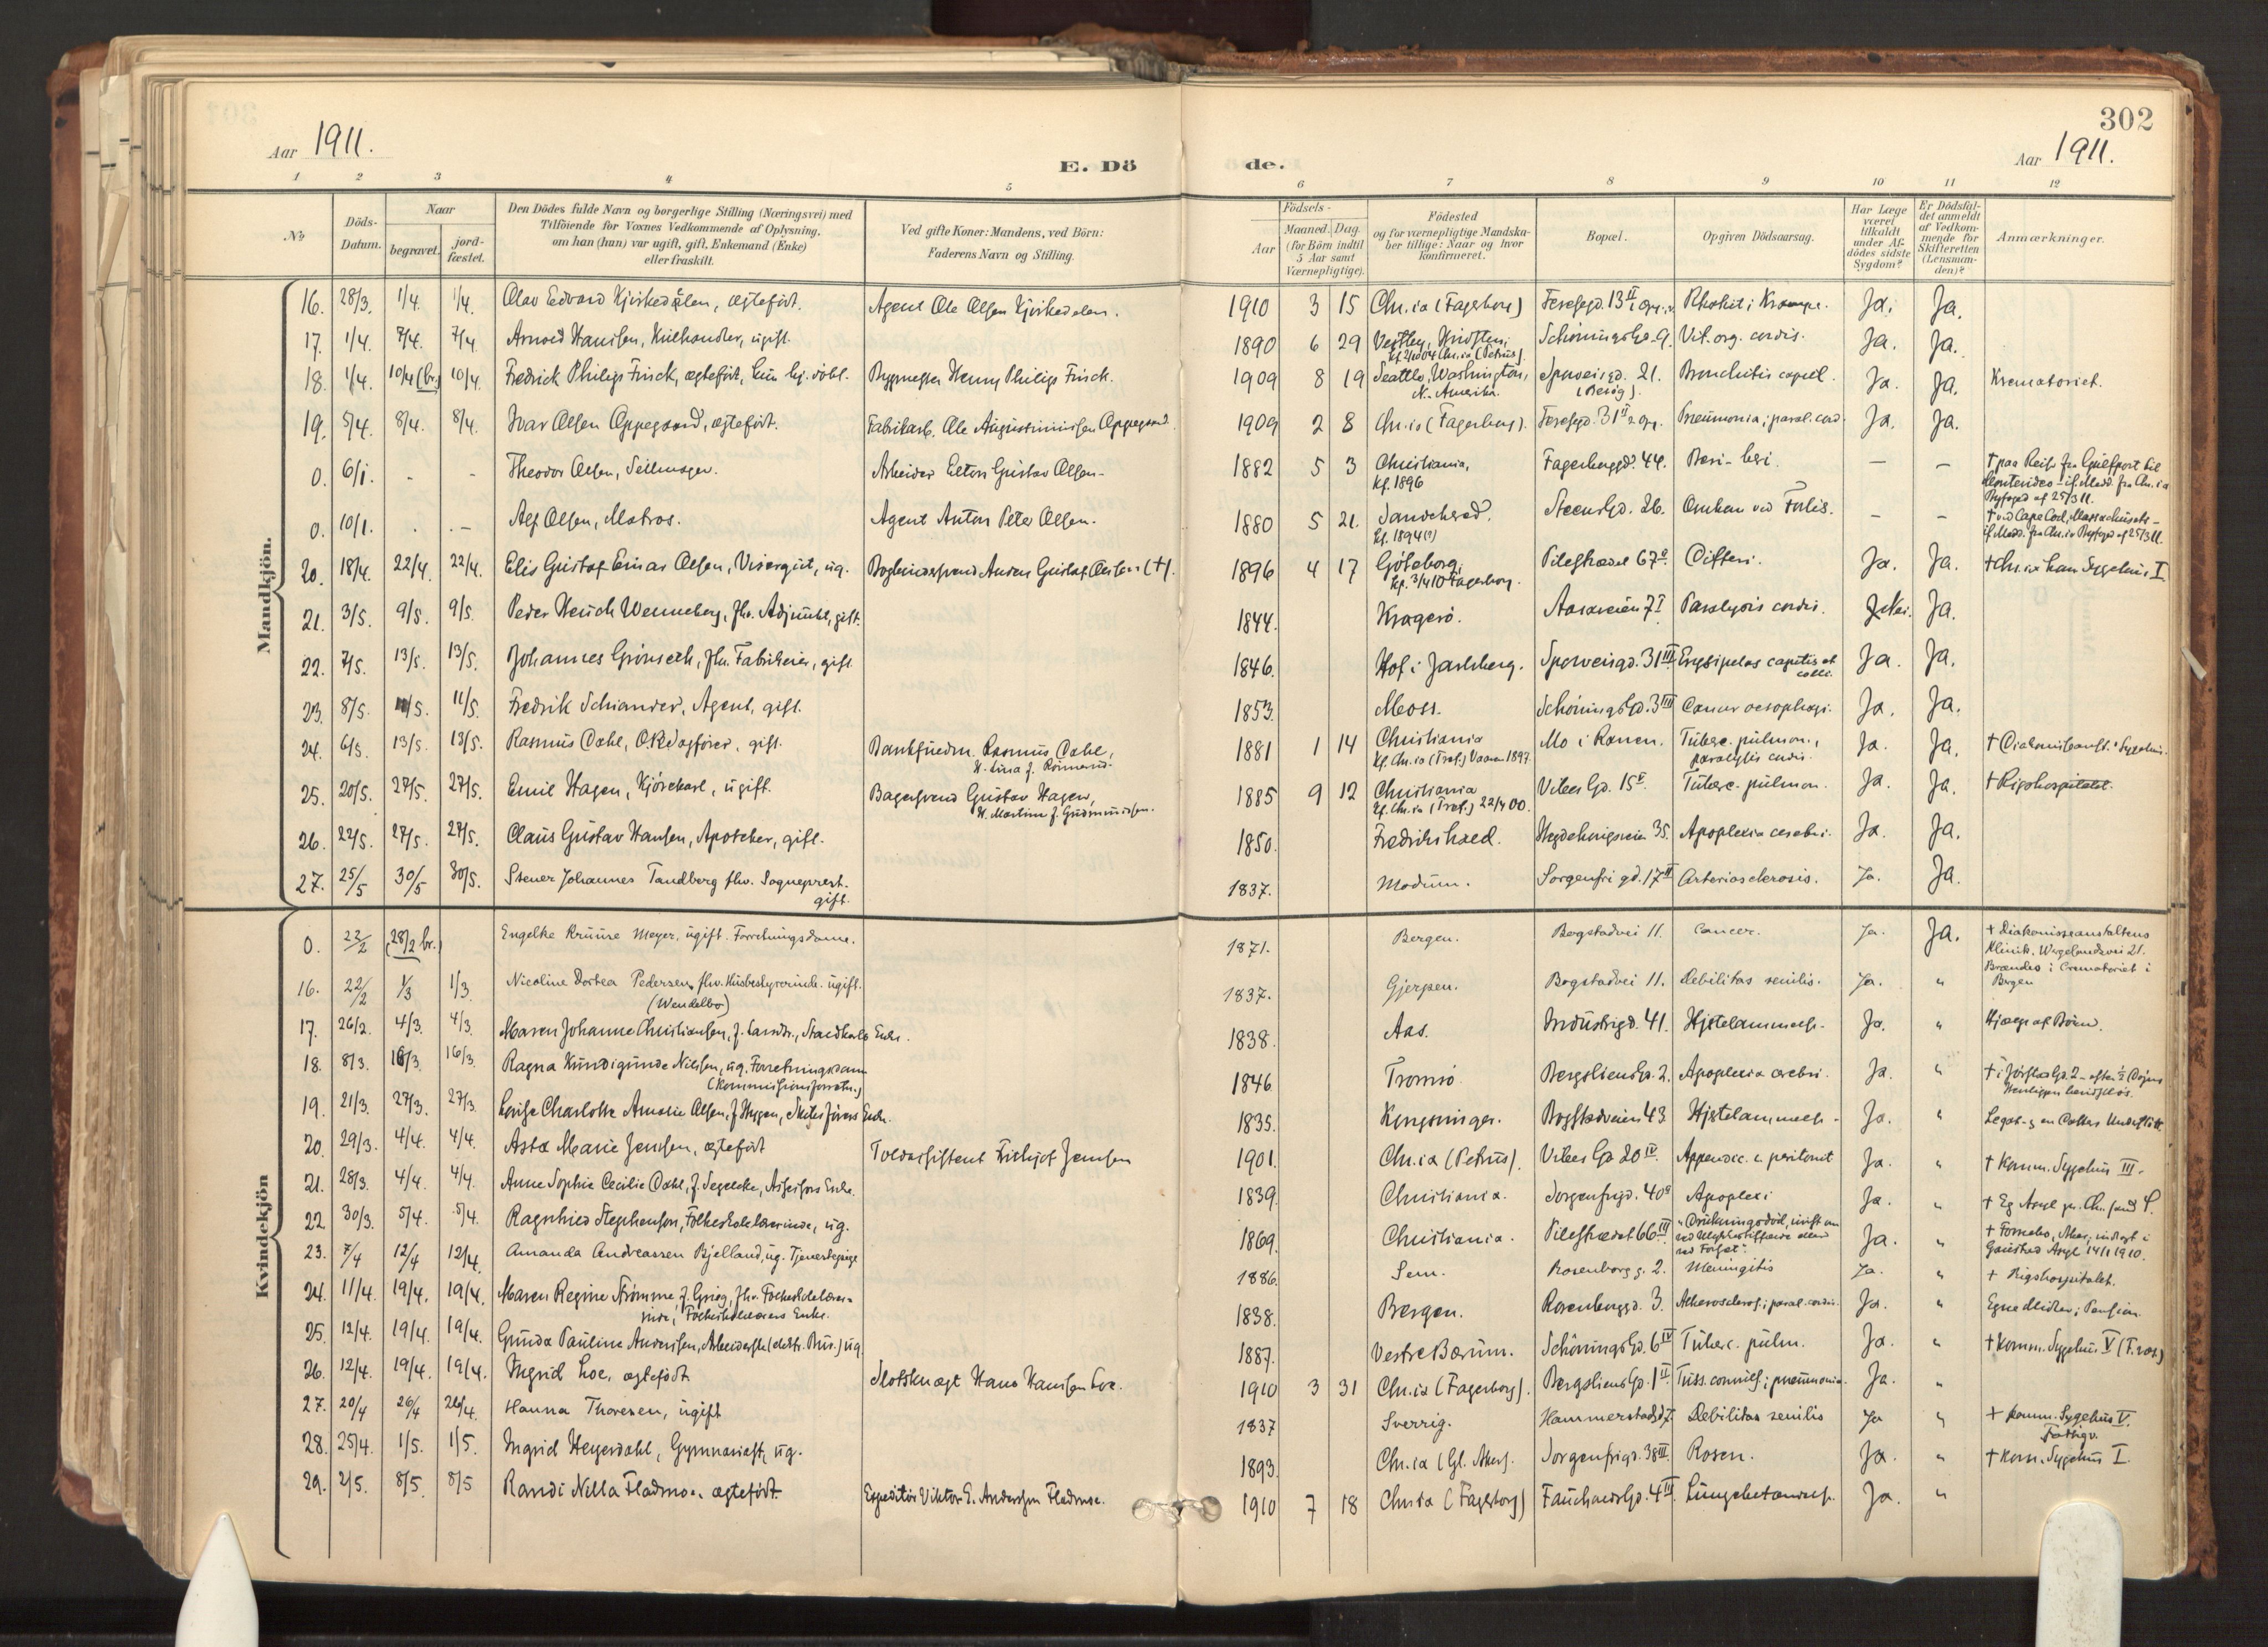 302
Aar 1911.
E. Döde.
Aar 1911.
1 2 3 4 5 6 7 8 9 10 11 12
No
Döds-Datum.
Naar
begravet.
jordfæstet.
Den Dödes fulde Navn og borgerlige Stilling (Næringsvei) med
Tilföiende for Voxnes Vedkommende af Oplysning,
om han (hun) var ugift, gift, Enkemand (Enke)
eller fraskilt.
Ved gifte Koner: Mandens, ved Börn:
Faderens Navn og Stilling.
Födsels-
Aar
Maaned. Dag.
(for Börn indtil
5 Aar samt
Værnepligtige).
Födested
og for værnepligtige Mandskaber tillige: Naar og hvor
konfirmeret.
Bopæl.
Opgiven Dödsaarsag.
Har Læge
været
tilkaldt
under Afdödes sidste
Sygdom?
Er Dödsfaldet anmeldt
af Vedkommende for
Skifteretten
(Lensmanden)?
Anmærkninger.
Mandkjön.
16. 28/3. 1/4. 1/4. Olav Edvard Kjirkedalen, ægtefödt. Agent Ole Olsen Kjirkedalen. 1910 3 15 Chr.ia (Fagerborg) Rhakit; Krampe. Ja. Ja.
17. 1/4. 7/4. 7/4. Arnold Hansen, ugift. 1890 6 29 Schönings Gd. 9. Vit. org. cordis. Ja. Ja.
18. 1/4. 10/4 (br.) 10/4. Fredrick Philips Frisck, ægtefödt, kun hj. döbt. Bygmester Henry Philips Frisch. 1909 8 19 Seattle, Washington, N. Amerika. Sporveisgd. 21. (Besög). Bronchitis capill. Ja. Ja. Krematoriet.
19. 5/4. 8/4. 8/4. Ivar Olsen Oppegaard, ægtefödt. Fabrikarb. Ole Augustinussen Oppegaard. 1909 2 8 Chr.ia (Fagerborg). Pneumonia; paral. cord. Ja. Ja.
0. 6/1. - - Theodor Olsen, Seilmager. Arbeider Gustav Olsen. 1882 5 3 Christiania, Kf. 1896 Fagerborggd. 44. Beri-beri. — — † paa Reise fra Gulfport til Montevideo - if. Medd. fra Chr.ia Byfoged af 25/3 11.
0. 10/1. . . - Alf Olsen, Matros. Agent Anton Peter Olsen. 1880 5 21. Sandeherad. Kf. 1894(?) Steens Gd. 26. Omkom ved Forlis. - - † ved Cape Cod, Massachusets - if. Medd. fra Chr.ia Byfoged af 25/3 11.
20. 18/4. 22/4. 22/4. Elis Gustaf Einar Olsen, Visergut, ug. Bogbindersvend Anders Gustaf Olsson (†). 1896 4 17 Göteborg, Kf. 3/4 10 Fagerborg. Pilestrædet 67 Difteri. Ja. Ja. † Chr.ia kom. Sygehus I
21. 3/5. 9/5. 9/5. Peder Heuch Wenneberg, fhv. Adjunkt, gift. 1844. Kragerö. Aasaveien 7 I Paralysis cordis. Nei. Ja.
22. 7/5. 13/5. 13/5. Johannes Grönseth, fhv. Fabrikeier, gift. 1846. Hof i Jarlsberg. Sporveisgd. 31 III Erysipelas capitis et colli. Ja. Ja.
23. 8/5. 11/5. 11/5. Fredrik Schiander, Agent, gift. 1853. Moss. Schönings Gd. 3 III Cancer oesophagi. Ja. Ja.
24. 6/5. 13/5. 13/5. Rasmus Dahl, gift. Rasmus Dahl, 1881 1 14 Christiania Kf. Chr.ia (Tref.) Vaaren 1897 Mo i Ranen. Tuberc. pulmon., paralysis cordis. Ja. Ja. † Diakonisseanst. Sygehus.
25. 20/5. 27/5. 27/5. Emil Hagen, Kjörekarl, ugift. Bagersvend Gustav Hagen, H. Martine f. Gudmundsen. 1885 9 12 Christiania Kf. Chr.ia (Tref.) 22/4 00. Vibes Gd. 15 Tuberc. pulmon. Ja. Ja. † Rigshospitalet.
26. 22/5. 27/5. 27/5. Claus Gustav Hansen, Apotheker, gift. 1850. Fredrikshald. Hegdehaugsveien 35. Apoplexia cerebri. Ja. Ja.
27. 25/5 30/5 30/5. Stener Johannes Tandberg fhv. Sogneprest. gift. 1837. Modum. Sorgenfri gd. 17 II Arteriosclerosis. Ja. Ja.
Kvindekjön
0. 22/2 (28/2 br.) Engelke Kruuse Meyer, ugift. Forretningsdame. 1871. Bergen. Bogstadvei 11. Cancer. Ja. Ja. † Diakonisseanstaltens Klinik, Wergelandsvei 21. Brændes i Crematoriet i Bergen
16. 22/2 1/3 1/3. Nicoline Dortea Pedersen, fhv. Husbestyrerinde. ugift. (Wendelbo) 1837. Gjerpen. Bogstadvei 11. Debilitas senilis. Ja. "
17. 26/2. 4/3. 4/3. Maren Johanne Christiansen, f. Larsdr., Enke. 1838. Aas. Industrigd. 41. Hjertelammelse. Ja. " Hjælp af Börn.
18. 8/3. 16/3. 16/3. Ragna Kundigunde Nilssen, ug. Forretningsdame (Kommissionsforretn.) 1846 Tromsö. Bergsliens Gd. 2. Apoplexia cerebri. Ja. "
19. 21/3. 27/3. 27/3. Louise Charlotte Amalie Olsen, f. Heyen, Skibsförers Enke. 1835. Kongsvinger. Bogstadveien 43 Hjertelammelse. Ja. "
20. 29/3. 4/4. 4/4. Asta Marie Jensen, ægtefödt Toldassistent Fritjof Jensen 1901. Chr.ia (Petrus). Vibes Gd 20 IV. Appendic. & peritonit Ja. " † Komm. Sygehus III.
21. 28/3. 4/4. 4/4. Anne Sophie Cecilie Dahl, f. Segelcke, Assessors Enke. 1839. Christiania. Sorgenfrigd. 40 Apoplexi Ja. "
22 30/3. 5/4. 5/4. Ragnhild Stephensen, Folkeskolelærerinde, ug. 1869. Christiania. Pilestrædet 66 III "Drukningsdöd, Ja. " † Fornebo, Aker, indlagt i Gaustad Asyl 14/1 1910.
23. 7/4 12/4 12/4. Amanda Andreassen Bjelland, ug. Tjenestepige 1886. Sem. Rosenborg g. 2. Meningitis Ja. " † Rigshospitalet.
24. 11/4. 19/4. 19/4. Maren Regine Strömme, f. Grieg, fhv. Folkeskolelærerinde, Folkeskolelærers Enke. 1838. Bergen. Rosenborggd. 3. Atherosclerosi; paral. cordis. Ja. " Egne Midler; Pension.
25. 12/4. 19/4. 19/4. Gunda Pauline Andersen, ug. 1887. Vestre Bærum. Schönings Gd. 6 IV Tuberc. pulm. Ja. " † Komm. Sygehus V
26. 12/4. 19/4. 19/4. Ingrid Loe, ægtefödt. Slotsknegt Hans Hansen Loe. 1910 3 31 Chr.ia (Fagerborg). Bergsliens Gd. 1 II. Tuss. convuls.; pneumonia. Ja. "
27. 20/4 26/4 26/4. Hanna Thoresen, ugift 1837 Sverrig. Debilitas senilis Ja " † Komm. Sygehus V. Fattigv.
28. 25/4. 1/5. 1/5. Ingrid Heyerdahl, Gymnasiast, ug. 1893. Chr.ia (Gl. Aker). Sorgenfrigd. 38 III. Rosen. Ja. " † Kom. Sygehus I.
29. 2/5. 8/5. 8/5 Randi Nilla Fladmoe, ægtefödt. Expeditör Viktor E. Andersen Fladmoe. 1910 7 18 Chr.ia (Fagerborg) Fauchalds Gd. 4 III. Lungebetændelse. Ja. "